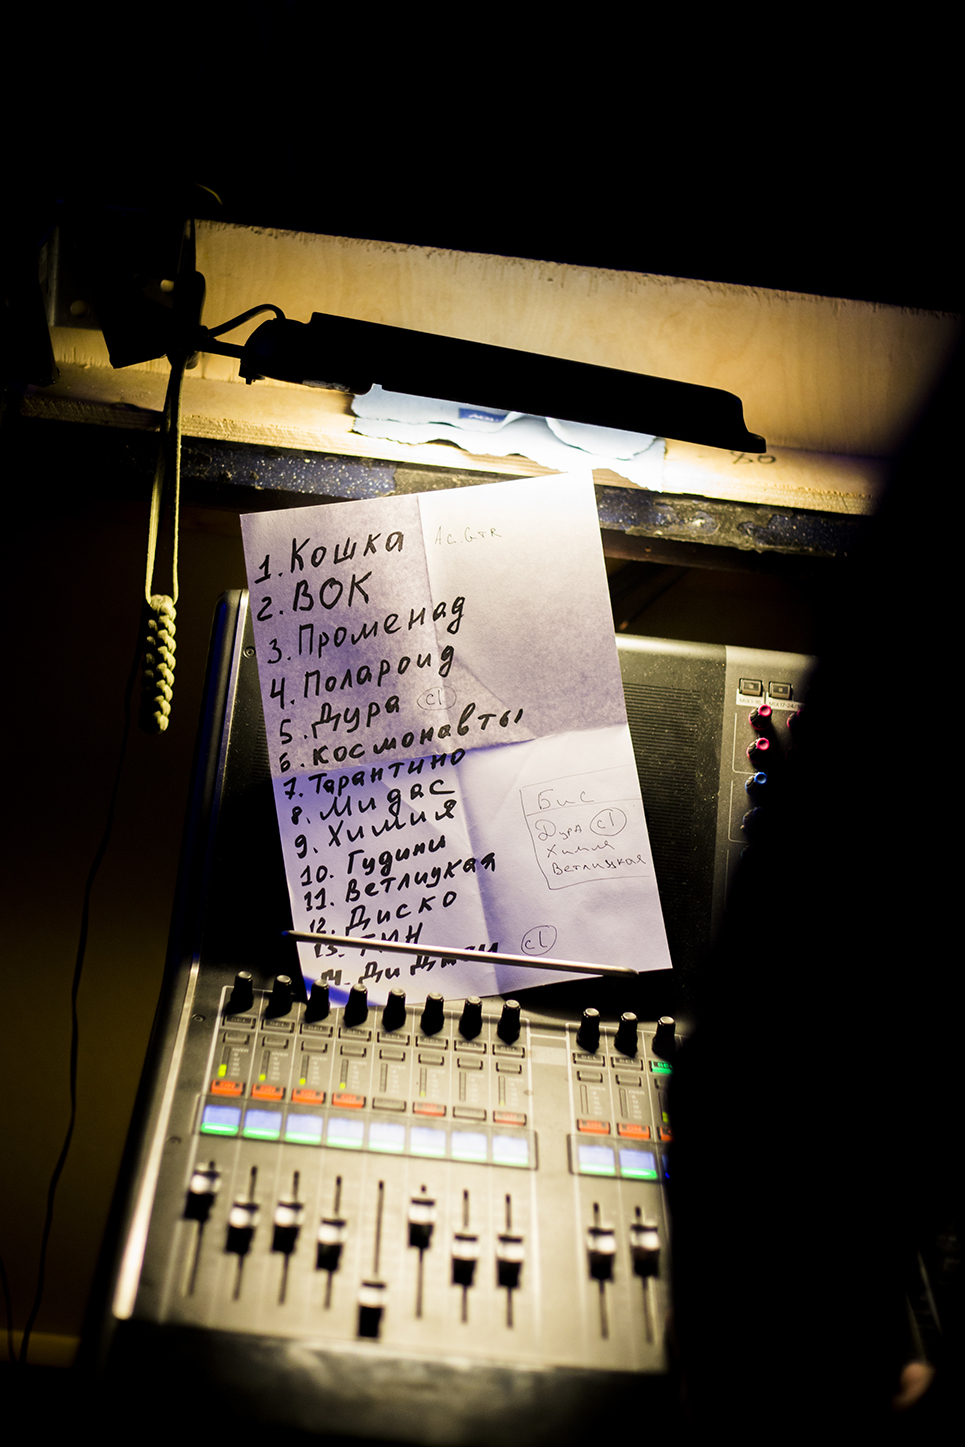 1. Кошка Ac. GTR
2. ВОК
3. Променад
4. Полароид
5. Дура cl
6. Космонавты
7. Тарантино
8. Мидас
9. Химия
10. Гудини
11. Ветлицкая
12. Диско
13.
14. Ди cl
Бис
Дура cl
Химия
Ветлицкая